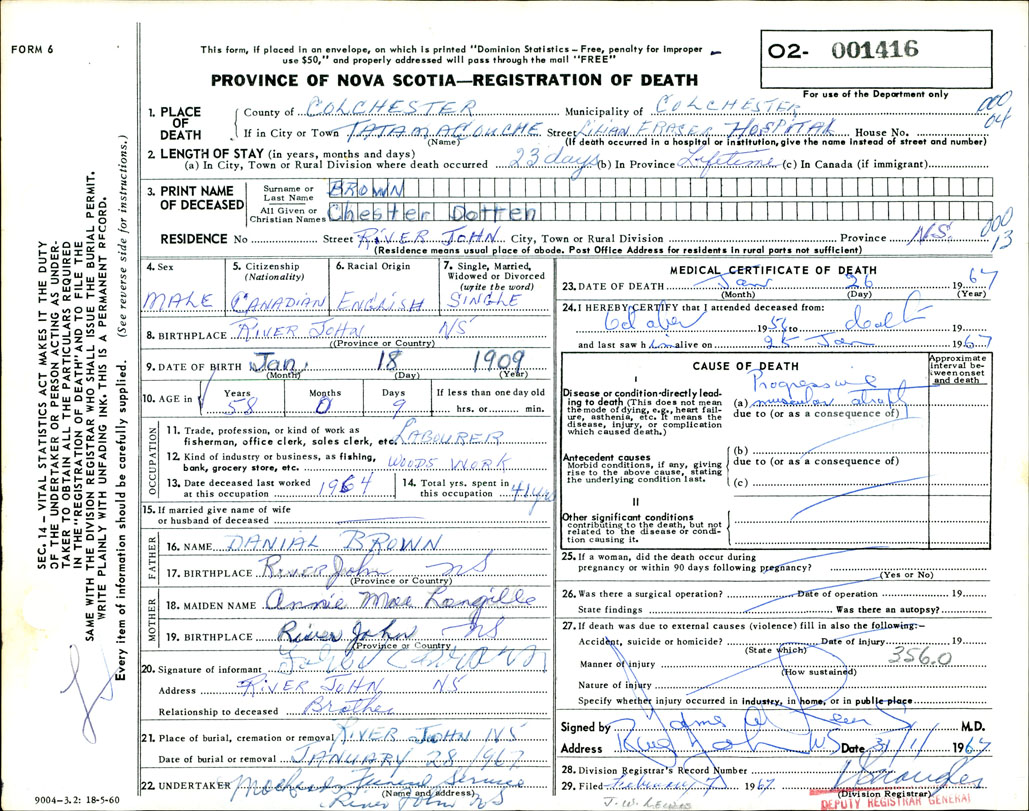 FORM 6
This form, if placed in an envelope, on which is printed "Dominion Statistics – Free, penalty for improper
use $50," and properly addressed will pass through the mail "FREE"
PROVINCE OF NOVA SCOTIA—REGISTRATION OF DEATH
O2- 001416
For use of the Department only
000
04
1. PLACE OF DEATH
County of COLCHESTER Municipality of COLCHESTER
If in City or Town TATAMAGOUCHE Street LILIAN FRASER HOSPITAL House No.
(Name) (If death occurred in a hospital or institution, give the name instead of street and number)
2. LENGTH OF STAY (in years, months and days)
(a) In City, Town or Rural Division where death occurred 23 days (b) In Province Lifetime (c) In Canada (if immigrant)
3. PRINT NAME OF DECEASED
Surname or Last Name BROWN
All Given or Christian Names Chester Dotten
RESIDENCE No Street RIVER JOHN City, Town or Rural Division Province N.S.
000
13
(Residence means usual place of abode. Post Office Address for residents in rural parts not sufficient)
4. Sex
MALE
5. Citizenship (Nationality)
CANADIAN
6. Racial Origin
ENGLISH
7. Single, Married, Widowed or Divorced (write the word)
SINGLE
8. BIRTHPLACE RIVER JOHN NS
(Province or Country)
9. DATE OF BIRTH Jan. 18 1909
(Month) (Day) (Year)
10. AGE in Years Months Days If less than one day old
58 0 9 hrs. or min.
OCCUPATION
11. Trade, profession, or kind of work as
fisherman, office clerk, sales clerk, etc. LABOURER
12. Kind of industry or business, as fishing,
bank, grocery store, etc. WOODS WORK
13. Date deceased last worked at this occupation 1964
14. Total yrs. spent in this occupation 41 yrs
15. If married give name of wife
or husband of deceased
FATHER
16. NAME DANIAL BROWN
17. BIRTHPLACE River John NS
(Province or Country)
MOTHER
18. MAIDEN NAME Annie Mae Langille
19. BIRTHPLACE River John NS
(Province or Country)
20. Signature of informant
Address RIVER JOHN NS
Relationship to deceased Brother
21. Place of burial, cremation or removal RIVER JOHN NS
Date of burial or removal JANUARY 28 1967
22. UNDERTAKER Funeral Service
(Name and address)
River John NS
9004-3.2: 18-5-60
MEDICAL CERTIFICATE OF DEATH
23. DATE OF DEATH Jan 26 1967
(Month) (Day) (Year)
24. I HEREBY CERTIFY that I attended deceased from:
October 1956 to death 19
and last saw him alive on 25 Jan 1967
CAUSE OF DEATH
Approximate interval between onset and death
I
Disease or condition directly leading to death (This does not mean the mode of dying, e.g., heart failure, asthenia, etc. It means the disease, injury, or complication which caused death.)
Progressive
(a) muscular atrophy
due to (or as a consequence of)
Antecedent causes
Morbid conditions, if any, giving rise to the above cause, stating the underlying condition last.
(b)
due to (or as a consequence of)
(c)
II
Other significant conditions
contributing to the death, but not related to the disease or condition causing it.
25. If a woman, did the death occur during
pregnancy or within 90 days following pregnancy?
(Yes or No)
26. Was there a surgical operation? Date of operation 19
State findings Was there an autopsy?
27. If death was due to external causes (violence) fill in also the following:–
Accident, suicide or homicide? Date of injury 19
(State which)
356.0
Manner of injury
(How sustained)
Nature of injury
Specify whether injury occurred in industry, in home, or in public place
Signed by M.D.
Address River John NS Date 31/1/ 1967
28. Division Registrar's Record Number
29. Filed February 1 1967
(Division Registrar)
DEPUTY REGISTRAR GENERAL
SEC. 14 – VITAL STATISTICS ACT MAKES IT THE DUTY
OF THE UNDERTAKER OR PERSON ACTING AS UNDER-
TAKER TO OBTAIN ALL THE PARTICULARS REQUIRED
IN THE "REGISTRATION OF DEATH" AND TO FILE THE
SAME WITH THE DIVISION REGISTRAR WHO SHALL ISSUE THE BURIAL PERMIT.
WRITE PLAINLY WITH UNFADING INK. THIS IS A PERMANENT RECORD.
Every item of information should be carefully supplied. (See reverse side for instructions.)